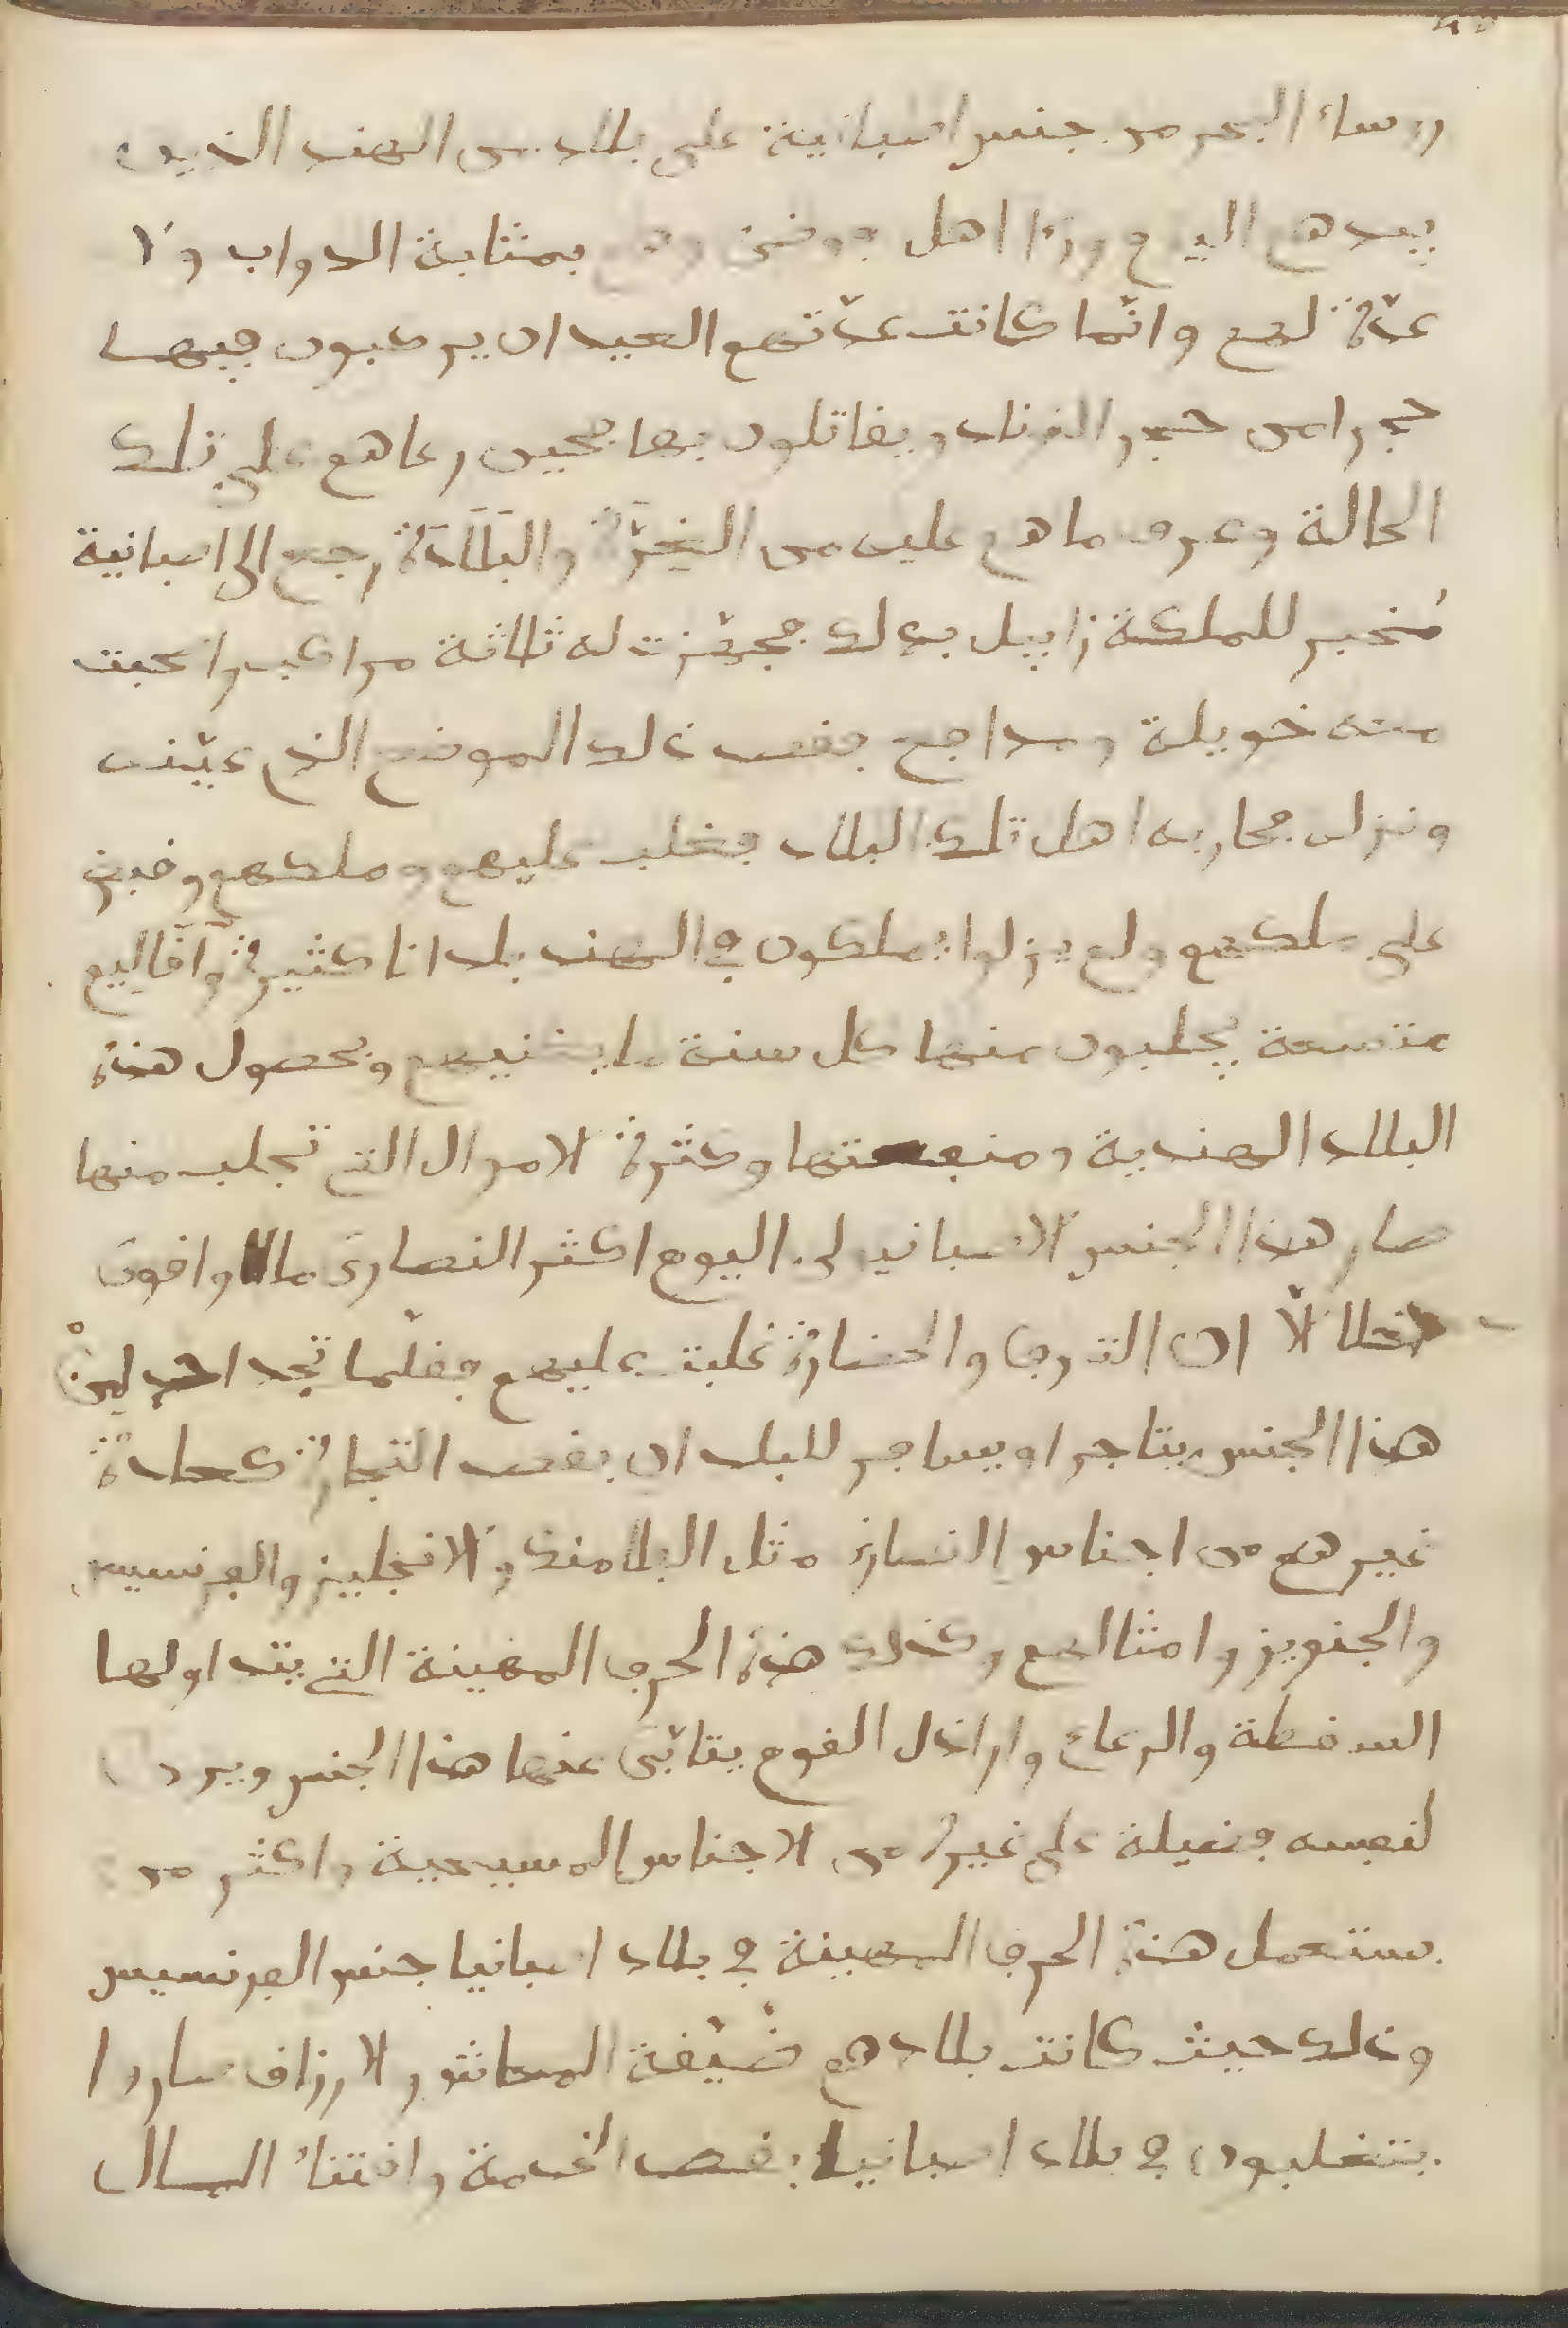 رؤساء البحر من جنس اصبانية على بلاد من الهند الذين
بيدهم اليوم اهل بمثابة الدواب ولا
عدّة لهم وانّما كانت عدّتهم العيدان يركبون فيها
حجرا من حجر الزناد ويقاتلون بها فحين رءاهم على تلك
الحالة وعرف ما هم عليه من الغِرّة والبَلَادَة رجع الى اصبانية
مُخبر للملكة زابيل بذلك فجهّزت له ثلاثة مراكب واصحبت
معه خويلة ومدافع فقصد ذلك الموضع الذي عيّنه
ونزله فحاربه اهل تلك البلاد فغلب عليهم وملكهم وقبض
على ملكهم ولم يزلوا يملكون في الهند بلدانا كثيرة وأقاليم
متسعة يجلبون منها كل سنة ما يغنيهم وبحصول هذه
البلاد الهندية ومنفعتها وكثرة الاموال التي تجلب منها
صار هذا الجنس الاصبانيولي اليوم اكثر النصارى مالا واقوى
الّا ان الترف والحضارة غلبت عليهم فقلّما تجد احد من
هذا الجنس يتاجر او يسافر للبلدان بقصد التجارة كعادة
غيرهم من اجناس النصارى مثل البلامنك والانجليز والفرنسيس
والجنويز وامثالهم وكذلك هذه الحرف المهينة التي يتداولها
السقطة والرعاع واراذل القوم يتأبّى عنها هذا الجنس ويرى
لنفسه فضيلة على غيره من الاجناس المسيحية واكثر من
يستعمل هذه الحرف المهينة في بلاد اصبانيا جنس الفرنسيس
وذلك حيث كانت بلادهم ضيّقة المعاش والارزاق صاروا
يتغلبون في بلاد اصبانيا بقصد الخدمة واقتناء المال